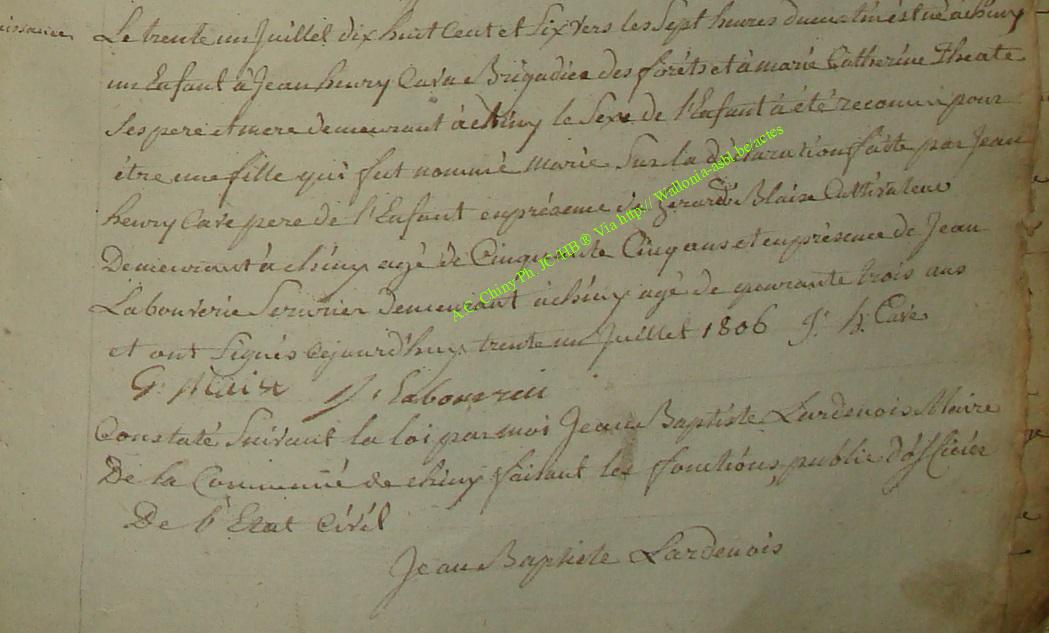 Le trente un Juillet dix huit Cent et Six vers les Sept heures du matin est né a chiny
un Enfant à Jean henry Cave Brigadier des foréts et à marié Catherine Theate
Ses pere et mere demeurant à chiny le Sexe de l'Enfant à été reconnu pour
étre une fille qui fut nommé Marie Sur la déclaration faite par Jean
henry Cave pere de l'Enfant en présence de Gérard Blaise Cultivateur
Demeurant à chiny agé de Cinquante Cinq ans et en présence de Jean
Labouverie Serurier demeurant à chiny agé de quarante trois ans
et ont Signés cejourd'huy trente un Juillet 1806 J. h. Cave
G. J. Labouverie
Constaté Suivant la loi par moi Jean Baptiste Lardenois Maire
De la Commune de chiny faisant les fonctions public d'officier
De l'Etat Civil
Jean Baptiste Lardenois
A.C. Chiny Ph. JC HB ® Via http:// Wallonia-asbl.be/actes